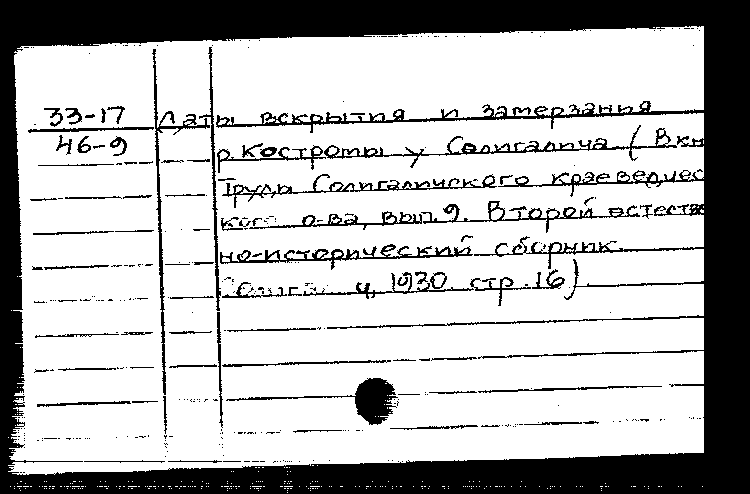 33-17 Даты вскрытия и замерзания
46-9 р. Костромы у Солигалича (В кн
Труды Солигаличского краеведчес
кого о-ва, вып. 9. Второй естеств
но-исторический сборник.
1930. стр. 16)